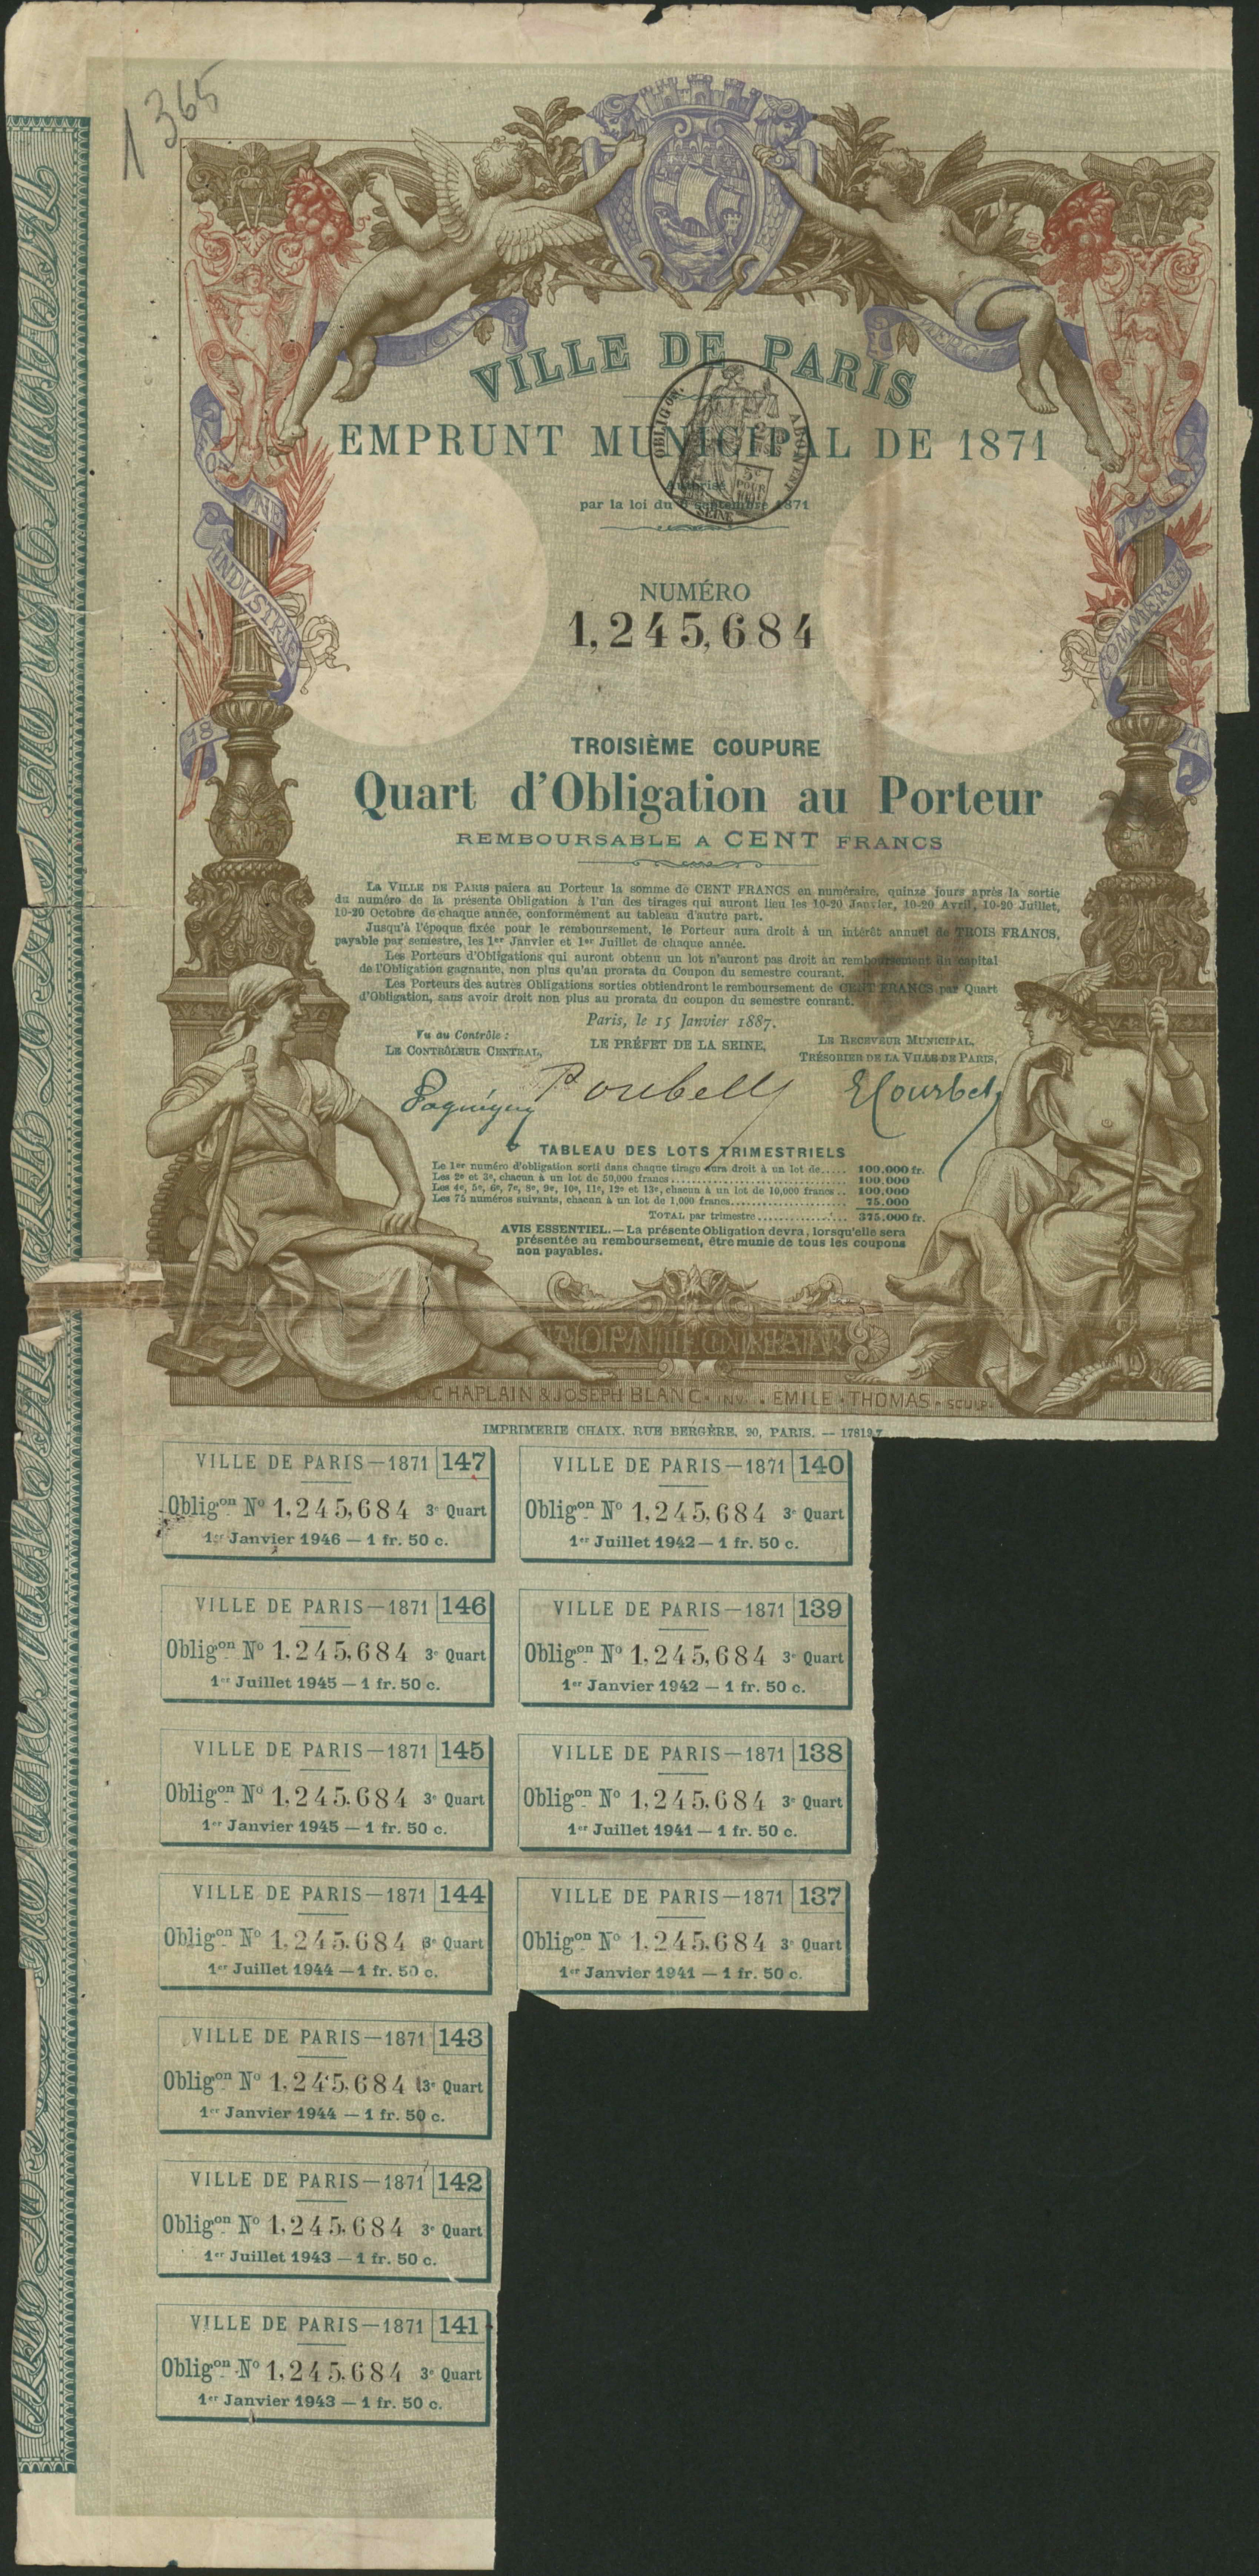 1365
VILLE DE PARIS
EMPRUNT MUNICIPAL DE 1871
Autorisé
par la loi du 6 septembre 1871
NUMÉRO
1,245,684
INDVSTRIE
COMMERCE
18
TROISIÈME COUPURE
Quart d'Obligation au Porteur
REMBOURSABLE A CENT FRANCS
LA VILLE DE PARIS paiera au Porteur la somme de CENT FRANCS en numéraire, quinze jours après la sortie
du numéro de la présente Obligation à l'un des tirages qui auront lieu les 10-20 Janvier, 10-20 Avril, 10-20 Juillet,
10-20 Octobre de chaque année, conformément au tableau d'autre part.
Jusqu'à l'époque fixée pour le remboursement, le Porteur aura droit à un intérêt annuel de TROIS FRANCS,
payable par semestre, les 1er Janvier et 1er Juillet de chaque année.
Les Porteurs d'Obligations qui auront obtenu un lot n'auront pas droit au remboursement du capital
de l'Obligation gagnante, non plus qu'au prorata du Coupon du semestre courant.
Les Porteurs des autres Obligations sorties obtiendront le remboursement de CENT FRANCS par Quart
d'Obligation, sans avoir droit non plus au prorata du coupon du semestre courant.
Paris, le 15 Janvier 1887.
Vu au Contrôle :
LE CONTRÔLEUR CENTRAL,
LE PRÉFET DE LA SEINE,
LE RECEVEUR MUNICIPAL,
TRÉSORIER DE LA VILLE DE PARIS,
Poubelle
E Courbet
TABLEAU DES LOTS TRIMESTRIELS
Le 1er numéro d'obligation sorti dans chaque tirage aura droit à un lot de..... 100.000 fr.
Les 2e et 3e, chacun à un lot de 50,000 francs.............................. 100.000
Les 4e, 5e, 6e, 7e, 8e, 9e, 10e, 11e, 12e et 13e, chacun à un lot de 10,000 francs .. 100.000
Les 75 numéros suivants, chacun à un lot de 1,000 francs.................... 75.000
TOTAL par trimestre ................ 375.000 fr.
AVIS ESSENTIEL. — La présente Obligation devra, lorsqu'elle sera
présentée au remboursement, être munie de tous les coupons
non payables.
CHAPLAIN & JOSEPH BLANC. INV. EMILE THOMAS. SCULP.
IMPRIMERIE CHAIX. RUE BERGÈRE, 20, PARIS. — 17819.7
VILLE DE PARIS—1871 147
Obligon No 1,245,684 3e Quart
1er Janvier 1946 — 1 fr. 50 c.
VILLE DE PARIS—1871 140
Obligon No 1,245,684 3e Quart
1er Juillet 1942 — 1 fr. 50 c.
VILLE DE PARIS—1871 146
Obligon No 1,245,684 3e Quart
1er Juillet 1945 — 1 fr. 50 c.
VILLE DE PARIS—1871 139
Obligon No 1,245,684 3e Quart
1er Janvier 1942 — 1 fr. 50 c.
VILLE DE PARIS—1871 145
Obligon No 1,245,684 3e Quart
1er Janvier 1945 — 1 fr. 50 c.
VILLE DE PARIS—1871 138
Obligon No 1,245,684 3e Quart
1er Juillet 1941 — 1 fr. 50 c.
VILLE DE PARIS—1871 144
Obligon No 1,245,684 3e Quart
1er Juillet 1944 — 1 fr. 50 c.
VILLE DE PARIS—1871 137
Obligon No 1,245,684 3e Quart
1er Janvier 1941 — 1 fr. 50 c.
VILLE DE PARIS—1871 143
Obligon No 1,245,684 3e Quart
1er Janvier 1944 — 1 fr. 50 c.
VILLE DE PARIS—1871 142
Obligon No 1,245,684 3e Quart
1er Juillet 1943 — 1 fr. 50 c.
VILLE DE PARIS—1871 141
Obligon No 1,245,684 3e Quart
1er Janvier 1943 — 1 fr. 50 c.